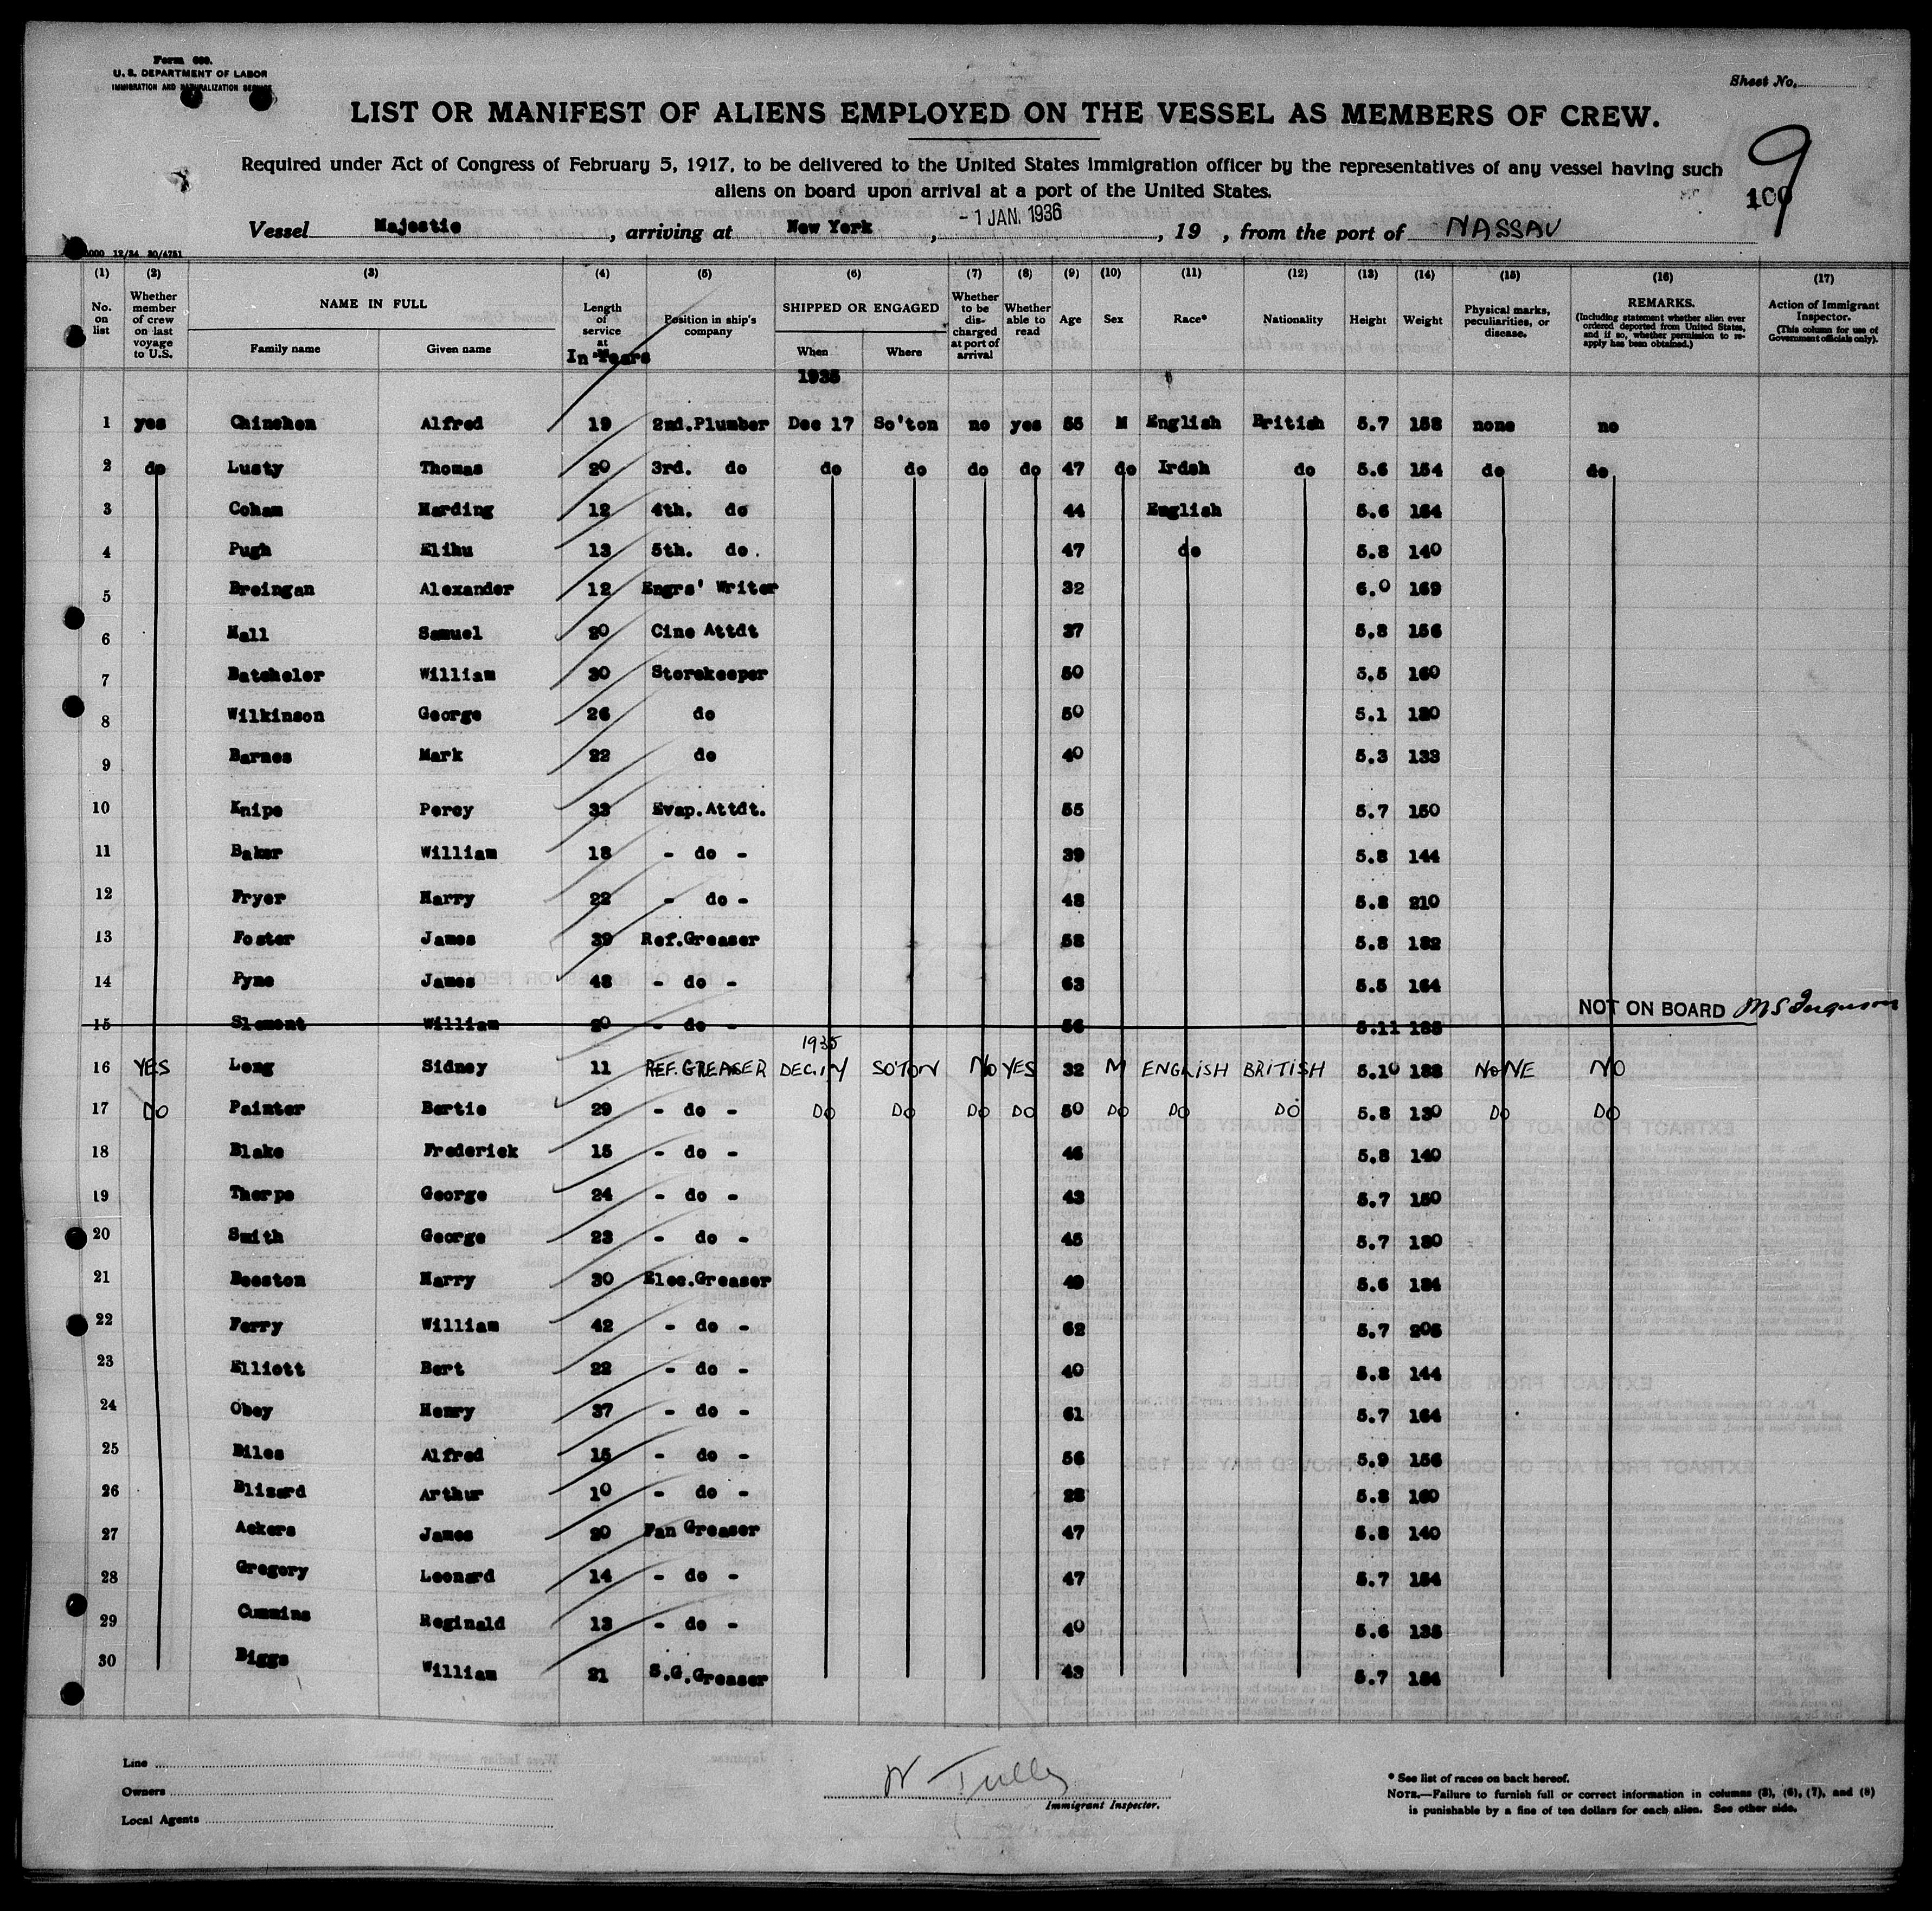 Form 680.
U. S. DEPARTMENT OF LABOR
IMMIGRATION AND NATURALIZATION SERVICE
Sheet No.
LIST OR MANIFEST OF ALIENS EMPLOYED ON THE VESSEL AS MEMBERS OF CREW.
Required under Act of Congress of February 5, 1917, to be delivered to the United States immigration officer by the representatives of any vessel having such
aliens on board upon arrival at a port of the United States.
9
100
Vessel Majestic , arriving at New York , -1 JAN. 1936 , 19 , from the port of NASSAU
(1) (2) (3) (4) (5) (6) (7) (8) (9) (10) (11) (12) (13) (14) (15) (16) (17)
No. on list Whether member of crew on last voyage to U.S. NAME IN FULL Family name Given name Length of service at In Years Position in ship's company SHIPPED OR ENGAGED When Where Whether to be discharged at port of arrival Whether able to read Age Sex Race* Nationality Height Weight Physical marks, peculiarities, or disease. REMARKS. (Including statement whether alien ever ordered deported from United States, and if so, whether permission to reapply has been obtained.) Action of Immigrant Inspector. (This column for use of Government officials only).
1935
1 yes Chinchen Alfred 19 2nd.Plumber Dec 17 So'ton no yes 55 M English British 5.7 158 none no
2 do Lusty Thomas 20 3rd. do do do do do 47 do Irdsh do 5.6 154 do do
3 Coham Harding 12 4th. do 44 English 5.6 164
4 Pugh Elihu 13 5th. do . 47 do 5.8 140
5 Breingan Alexander 12 Engrs' Writer 32 6.0 169
6 Hall Samuel 20 Cine Attdt 37 5.8 156
7 Batchelor William 30 Storekeeper 50 5.5 160
8 Wilkinson George 26 do 50 5.1 120
9 Barnes Mark 22 do 40 5.3 133
10 Knipe Percy 33 Evap.Attdt. 55 5.7 150
11 Baker William 18 - do - 39 5.8 144
12 Fryer Harry 22 - do - 48 5.8 210
13 Foster James 39 Ref.Greaser 58 5.8 182
14 Pyne James 48 - do - 63 5.5 164
NOT ON BOARD M S Ferguson
15 Slement William 20 - do - 56 5.11
1935
16 YES Long Sidney 11 REF. GREASER DEC. 17 SO'TON NO YES 32 M ENGLISH BRITISH 5.10 188 NONE NO
17 DO Painter Bertie 29 - do - DO DO DO DO 50 DO DO DO 5.8 130 DO DO
18 Blake Frederick 15 - do - 46 5.8 140
19 Thorpe George 24 - do - 43 5.7 150
20 Smith George 23 - do - 45 5.7 180
21 Beeston Harry 30 Elec.Greaser 49 5.6 184
22 Ferry William 42 - do - 62 5.7 205
23 Elliott Bert 22 - do - 40 5.8 144
24 Obey Henry 37 - do - 61 5.7 164
25 Biles Alfred 15 - do - 56 5.9 156
26 Blizard Arthur 10 - do - 28 5.8 160
27 Ackers James 20 Fan Greaser 47 5.8 140
28 Gregory Leonard 14 - do - 47 5.7 154
29 Cummins Reginald 13 - do - 40 5.6 135
30 Biggs William 21 S.G.Greaser 43 5.7 184
Line
Owners
Local Agents
W Tully
Immigrant Inspector.
* See list of races on back hereof.
NOTE.—Failure to furnish full or correct information in columns (3), (6), (7), and (8)
is punishable by a fine of ten dollars for each alien. See other side.